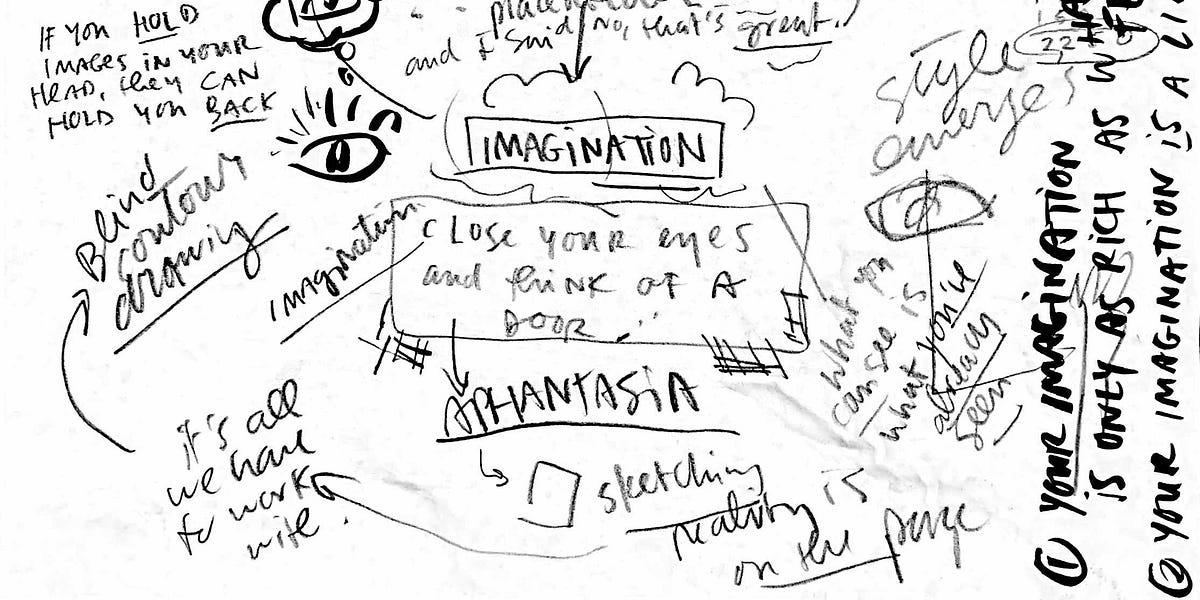 IF YOU HOLD
IMAGES IN YOUR
HEAD, they CAN
HOLD YOU BACK
and I said No, that's great.
IMAGINATION
style
emerges
22
Blind
contour
drawing
imagination
CLOSE YOUR EYES
and thiNK OF A
DOOR
APHANTASiA
it's all
we have
to work
with.
sketching
reality is
on the page
what you
can see is
what you're
already
seen
① YOUR IMAGINATION
iS ONLY AS RICH AS
② YOUR IMAGINATION iS A